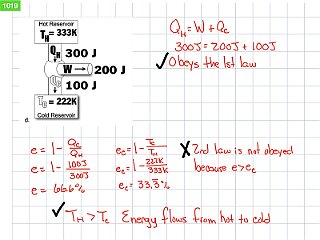 1019
Hot Reservoir
T_H = 333K
Q_H 300 J
W → 200 J
Q_C 100 J
T_C = 222K
Cold Reservoir
d.
Q_H = W + Q_C
300J = 200J + 100J
✓ Obeys the 1st law
e = 1 - Q_C/Q_H
e = 1 - 100J/300J
e = 66.6%
e_c = 1 - T_C/T_H
e_c = 1 - 222K/333K
e_c = 33.3%
X 2nd law is not obeyed
because e > e_c
✓ T_H > T_C Energy flows from hot to cold